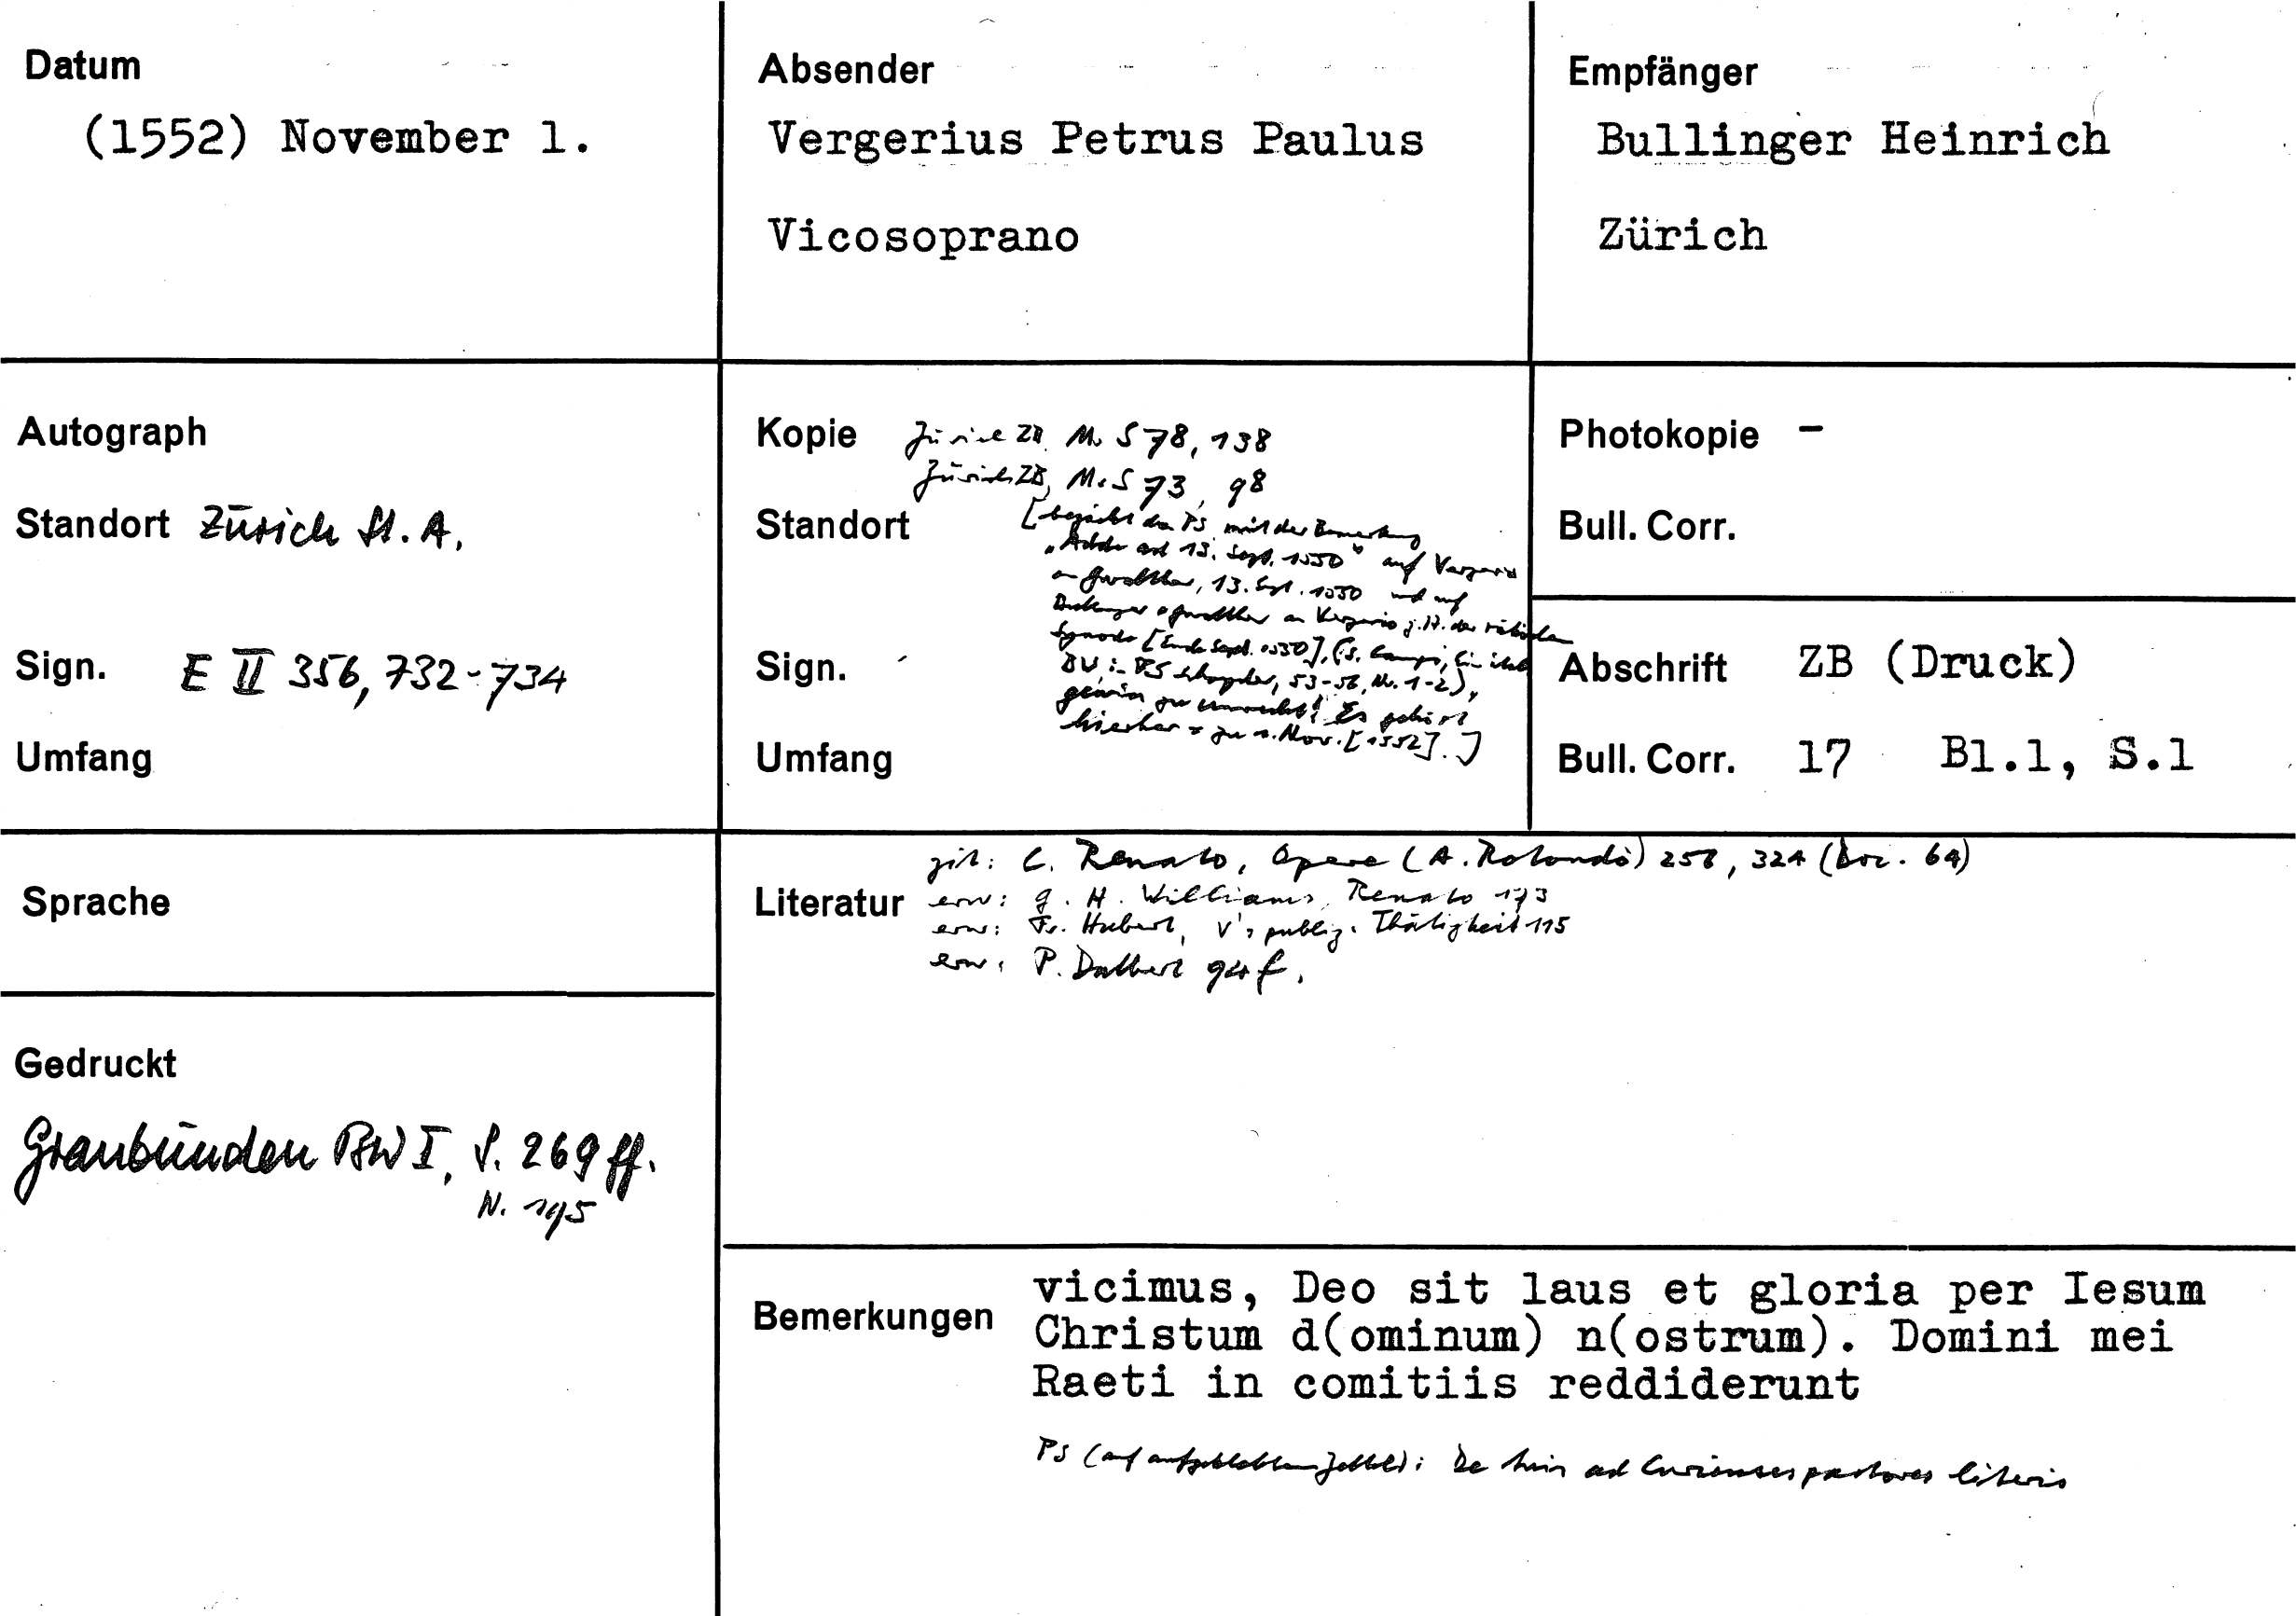 Datum
(1552) November 1.
Absender
Vergerius Petrus Paulus
Vicosoprano
Empfänger
Bullinger Heinrich
Zürich
Autograph
Standort Zürich St. A.
Sign. E II 356, 732-734
Umfang
Kopie Zürich ZB, Ms S 78, 138
Zürich ZB, Ms S 73, 98
Standort
[bezieht das PS mit der Bemerkung
"Adde ad 13. Sept. 1550" auf Vergerio
an Gwalther, 13. Sept. 1550 und auf
Bullinger + Gwalther an Vergerio z. H. der rätischen
Synode [Ende Sept. 1550], (s. Campi, Ein
BW, in: FS 53-58, Nr. 1-2),
gewiss zu unrecht! Es gehört
hierher = zu 1. Nov. [1552].]
Sign.
Umfang
Photokopie -
Bull. Corr.
Abschrift ZB (Druck)
Bull. Corr. 17 Bl.1, S.1
Sprache
Gedruckt
Graubünden BW I, S. 269 ff.
N. 195
Literatur
zit: C. Renato, Opere (A. Rotondò) 258, 324 (Doc. 64)
erw: G. H. Williams, Renato 173
erw: Fr. Hubert, V's publiz. Thätigkeit 115
erw: P. Dalbert 94 f.
Bemerkungen
vicimus, Deo sit laus et gloria per Iesum
Christum d(ominum) n(ostrum). Domini mei
Raeti in comitiis reddiderunt
PS (auf aufgeklebtem Zettel): De tuis ad Curienses pastores literis